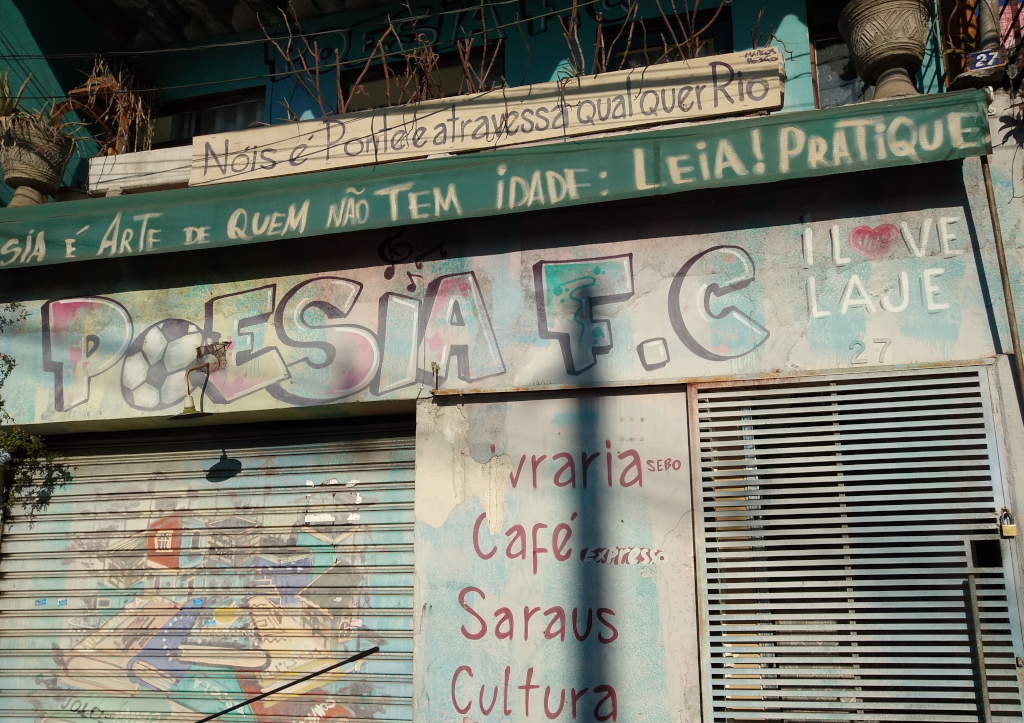 POESIA F.C
MARCOS
27
Nóis é Ponte e atravessa qual'quer Rio
SIA É ARTE DE QUEM NÃO TEM IDADE: LEIA! PRATIQUE
POESIA F.C
I LOVE
LAJE
27
vraria SEBO
Café EXPRESSO
Saraus
Cultura